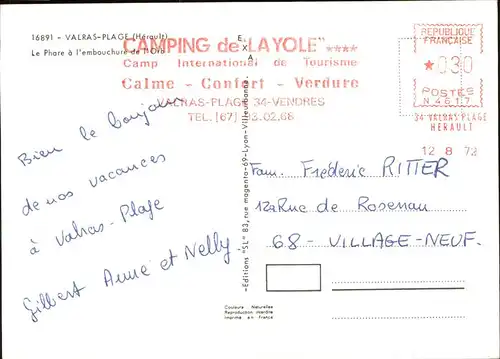 16891 - VALRAS-PLAGE (Hérault)
Le Phare à l'embouchure de l'Orb
EXA
"CAMPING de LAYOLE" ****
Camp International de Tourisme
Calme - Confort - Verdure
VALRAS-PLAGE 34-VENDRES
TEL. (67) 93.02.68
REPUBLIQUE
FRANÇAISE
*030
POSTES
N 4617
34 VALRAS PLAGE
HERAULT
12 8 72
Bien le bonjour
de nos vacances
à Valras-Plage
Gilbert Anne et Nelly.
Fam. Frédéric RITTER
12a Rue de Rosenau
68 - VILLAGE-NEUF.
-Editions "SL" 83, rue magenta-69-Lyon-Villeurbanne.
Couleurs Naturelles
Reproduction interdite
Imprimé en France